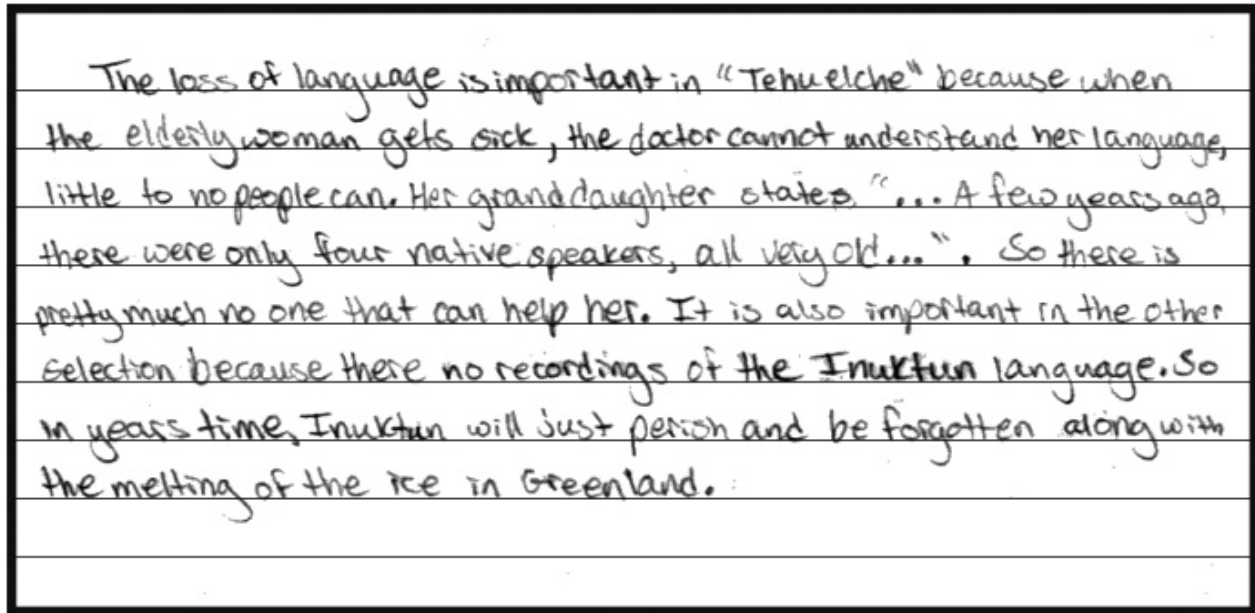 The loss of language is important in "Tehuelche" because when
the elderly woman gets sick, the doctor cannot understand her language,
little to no people can. Her granddaughter states "... A few years ago,
there were only four native speakers, all very old...". So there is
pretty much no one that can help her. It is also important in the other
selection because there no recordings of the Inuktun language. So
in years time, Inuktun will just perish and be forgotten along with
the melting of the ice in Greenland.